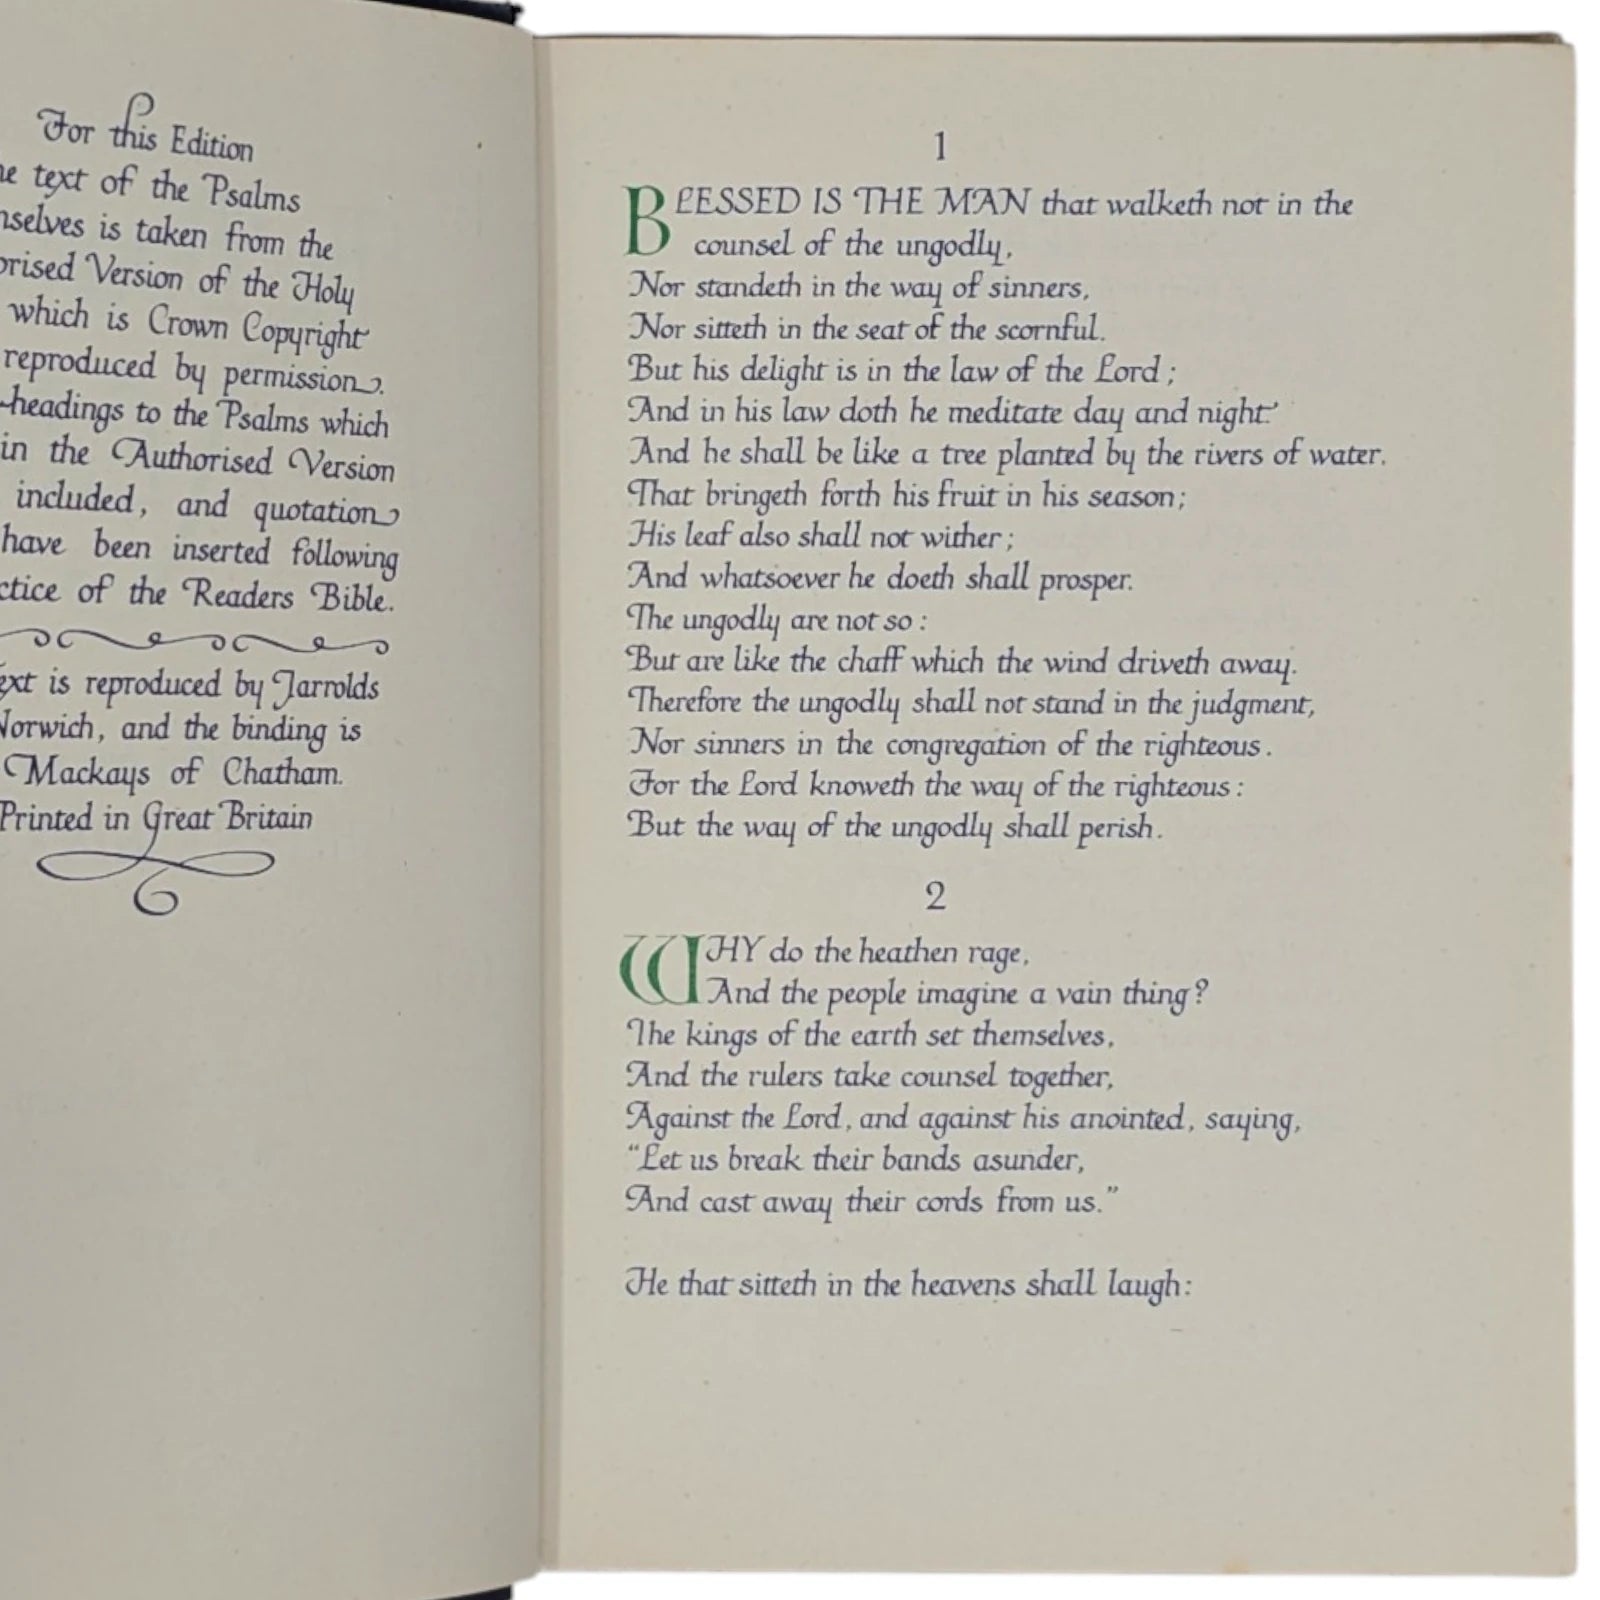 For this Edition
text of the Psalms
is taken from the
Version of the Holy
which is Crown Copyright
reproduced by permission.
-headings to the Psalms which
in the Authorised Version
included, and quotation
have been inserted following
of the Readers Bible.
is reproduced by Jarrolds
Norwich, and the binding is
Mackays of Chatham.
Printed in Great Britain
1
BLESSED IS THE MAN that walketh not in the
counsel of the ungodly,
Nor standeth in the way of sinners,
Nor sitteth in the seat of the scornful.
But his delight is in the law of the Lord;
And in his law doth he meditate day and night.
And he shall be like a tree planted by the rivers of water,
That bringeth forth his fruit in his season;
His leaf also shall not wither;
And whatsoever he doeth shall prosper.
The ungodly are not so:
But are like the chaff which the wind driveth away.
Therefore the ungodly shall not stand in the judgment,
Nor sinners in the congregation of the righteous.
For the Lord knoweth the way of the righteous:
But the way of the ungodly shall perish.
2
WHY do the heathen rage,
And the people imagine a vain thing?
The kings of the earth set themselves,
And the rulers take counsel together,
Against the Lord, and against his anointed, saying,
“Let us break their bands asunder,
And cast away their cords from us.”
He that sitteth in the heavens shall laugh: